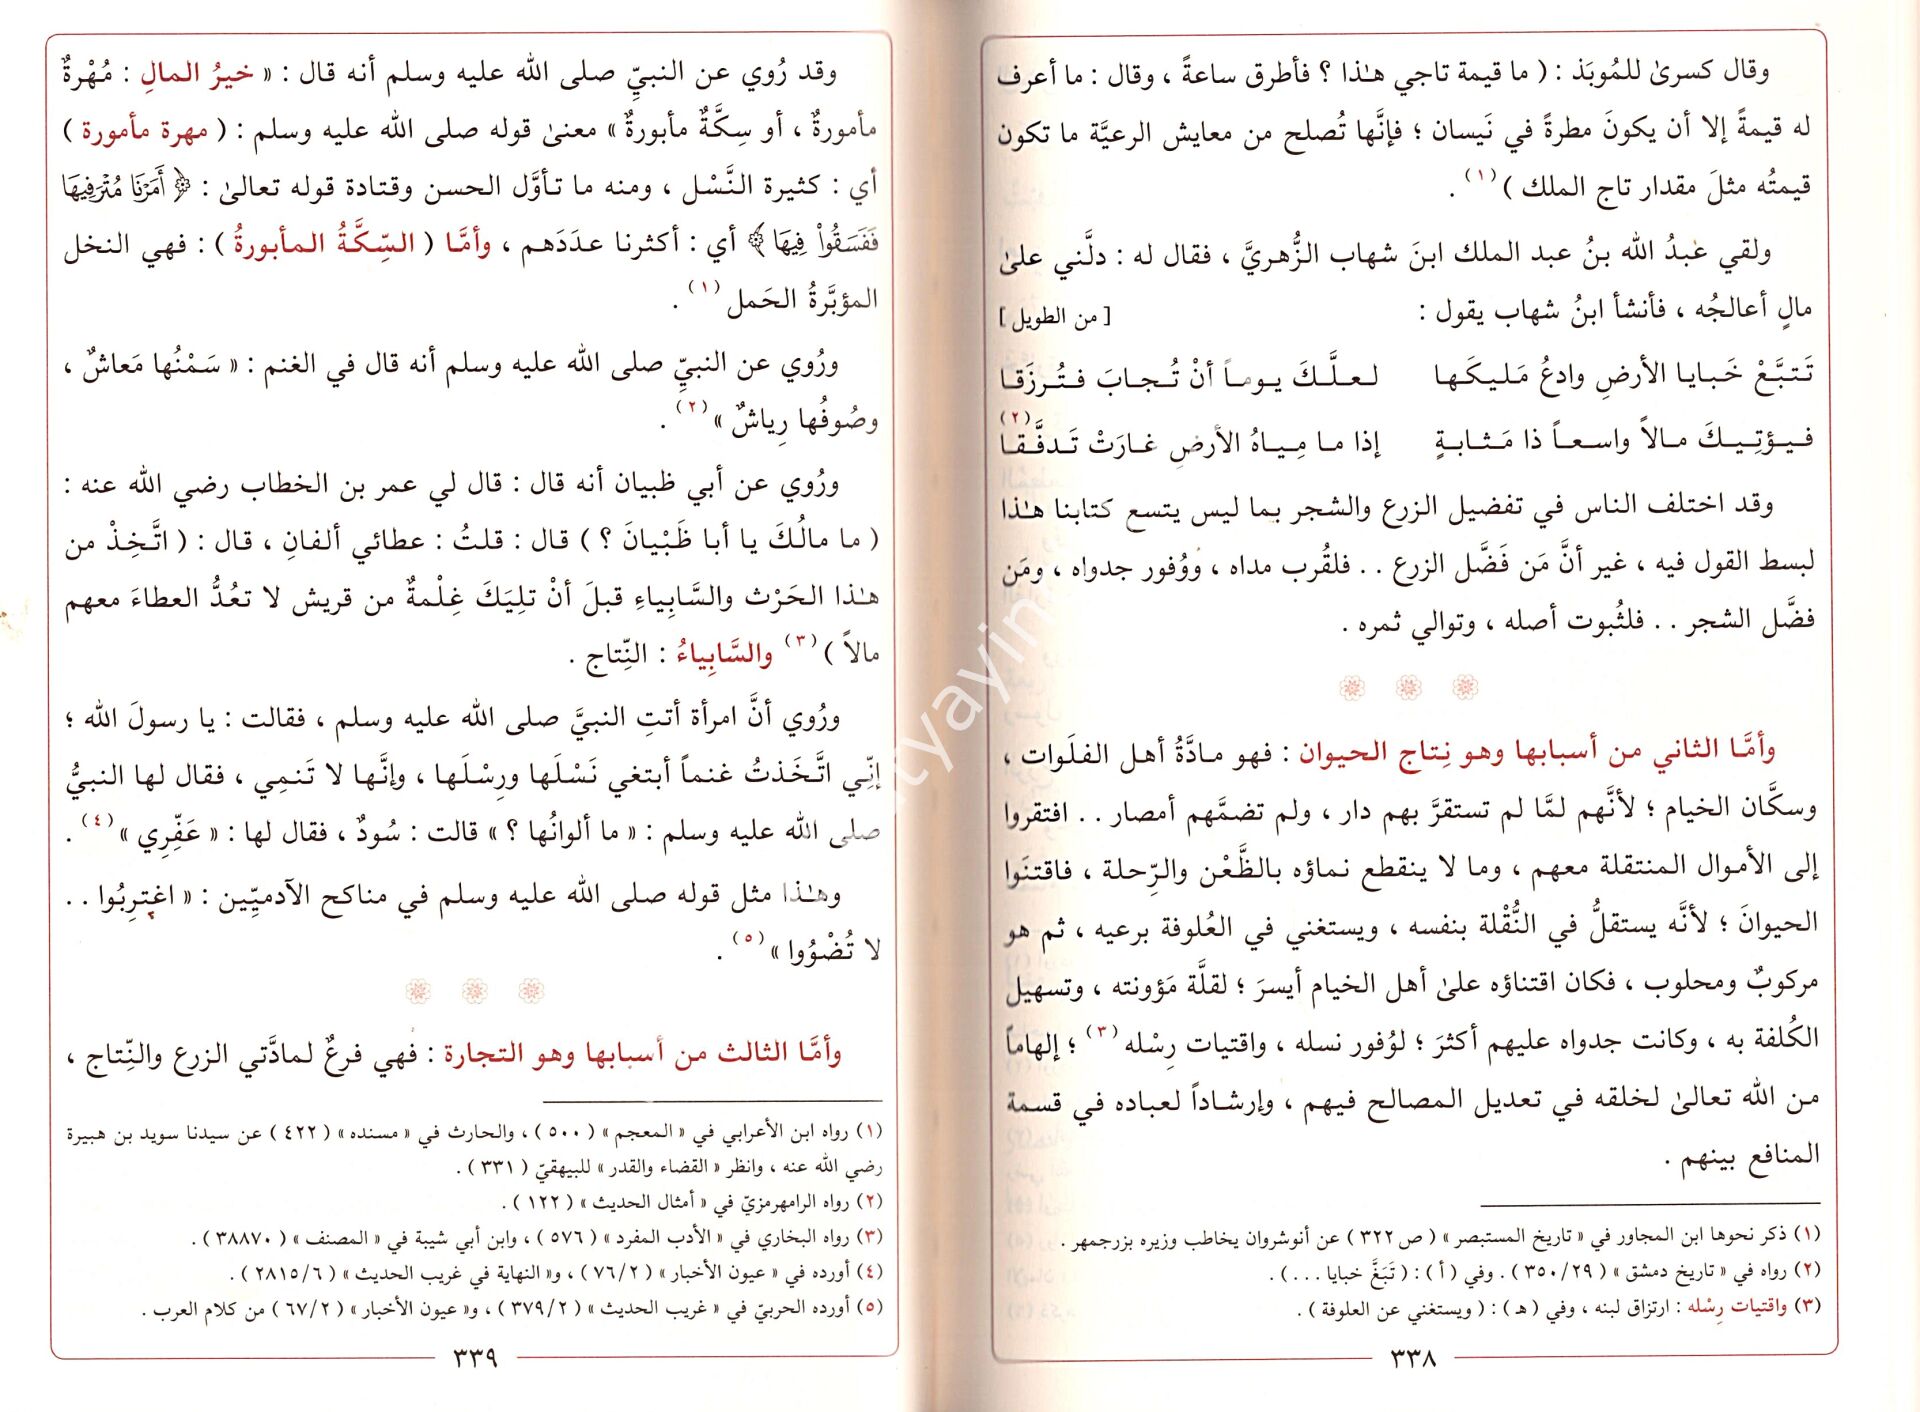 وقال كسرىٰ للمُوبَذ : ( ما قيمة تاجي هـٰذا ؟ فأطرق ساعةً ، وقال : ما أعرف
له قيمةً إلا أن يكونَ مطرةً في نَيسان ؛ فإنَّها تُصلح من معايش الرعيَّة ما تكون
قيمتُه مثلَ مقدار تاج الملك )(١) .
ولقي عبدُ الله بنُ عبد الملك ابنَ شهاب الزُّهريَّ ، فقال له : دلَّني علىٰ
مالٍ أعالجُه ، فأنشأ ابنُ شهاب يقول : [ من الطويل ]
تَتبَّعْ خَبايا الأرضِ وادعُ مَليكَها لعلَّكَ يوماً أنْ تُجابَ فتُرزَقا
فيؤتِيكَ مالاً واسعاً ذا مَثابةٍ إذا ما مِياهُ الأرضِ غارَتْ تَدفَّقا(٢)
وقد اختلف الناس في تفضيل الزرع والشجر بما ليس يتسع كتابنا هـٰذا
لبسط القول فيه ، غير أنَّ مَن فَضَّل الزرع . . فلقُرب مداه ، ووُفور جدواه ، ومَن
فضَّل الشجر . . فلثُبوت أصله ، وتوالي ثمره .
وأمَّا الثاني من أسبابها وهو نِتاج الحيوان : فهو مادَّةُ أهل الفلَوات ،
وسكَّان الخيام ؛ لأنَّهم لمَّا لم تستقرَّ بهم دار ، ولم تضمَّهم أمصار . . افتقروا
إلى الأموال المنتقلة معهم ، وما لا ينقطع نماؤه بالظَّعْن والرِّحلة ، فاقتنَوا
الحيوانَ ؛ لأنَّه يستقلُّ في النُّقْلة بنفسه ، ويستغني في العُلوفة برعيه ، ثم هو
مركوبٌ ومحلوب ، فكان اقتناؤه علىٰ أهل الخيام أيسرَ ؛ لقلَّة مَؤونته ، وتسهيل
الكُلفة به ، وكانت جدواه عليهم أكثرَ ؛ لوُفور نسله ، واقتيات رِسْله(٣) ؛ إلهاماً
من الله تعالىٰ لخلقه في تعديل المصالح فيهم ، وإرشاداً لعباده في قسمة
المنافع بينهم .
(١) ذكر نحوها ابن المجاور في « تاريخ المستبصر » ( ص ٣٢٢ ) عن أنوشروان يخاطب وزيره بزرجمهر .
(٢) رواه في « تاريخ دمشق » ( ٣٥٠/٢٩ ) . وفي ( أ ) : ( تَبَغَّ خبايا . . . ) .
(٣) واقتيات رِسْله : ارتزاق لبنه ، وفي ( هـ ) : ( ويستغني عن العلوفة ) .
٣٣٨
وقد رُوي عن النبيِّ صلى الله عليه وسلم أنه قال : « خيرُ المالِ : مُهْرةٌ
مأمورةٌ ، أو سِكَّةٌ مأبورةٌ » معنىٰ قوله صلى الله عليه وسلم : ( مهرة مأمورة )
أي : كثيرة النَّسْل ، ومنه ما تأوَّل الحسن وقتادة قوله تعالىٰ : ﴿ أَمَرْنَا مُتْرَفِيهَا
فَفَسَقُواْ فِيهَا ﴾ أي : أكثرنا عدَدَهم ، وأمَّا ( السِّكَّةُ المأبورةُ ) : فهي النخل
المؤبَّرةُ الحَمل(١) .
ورُوي عن النبيِّ صلى الله عليه وسلم أنه قال في الغنم : « سَمْنُها مَعاشٌ ،
وصُوفُها رِياشٌ »(٢) .
ورُوي عن أبي ظبيان أنه قال : قال لي عمر بن الخطاب رضي الله عنه :
( ما مالُكَ يا أبا ظَبْيانَ ؟ ) قال : قلتُ : عطائي ألفانِ ، قال : ( اتَّخِذْ من
هـٰذا الحَرْث والسَّابِياءِ قبلَ أنْ تلِيَكَ غِلْمةٌ من قريش لا تعُدُّ العطاءَ معهم
مالاً )(٣) والسَّابِياءُ : النِّتاج .
ورُوي أنَّ امرأة أتتِ النبيَّ صلى الله عليه وسلم ، فقالت : يا رسولَ الله ؛
إنِّي اتَّخَذتُ غنماً أبتغي نَسْلَها ورِسْلَها ، وإنَّها لا تَنمِي ، فقال لها النبيُّ
صلى الله عليه وسلم : « ما ألوانُها ؟ » قالت : سُودٌ ، فقال لها : « عَفِّرِي »(٤) .
وهـٰذا مثل قوله صلى الله عليه وسلم في مناكح الآدميِّين : « اغترِبُوا . .
لا تُضْوُوا »(٥) .
وأمَّا الثالث من أسبابها وهو التجارة : فهي فرعٌ لمادَّتي الزرع والنِّتاج ،
(١) رواه ابن الأعرابي في « المعجم » ( ٥٠٠ ) ، والحارث في « مسنده » ( ٤٢٢ ) عن سيدنا سويد بن هبيرة
رضي الله عنه ، وانظر « القضاء والقدر » للبيهقيّ ( ٣٣١ ) .
(٢) رواه الرامهرمزيّ في « أمثال الحديث » ( ١٢٢ ) .
(٣) رواه البخاري في « الأدب المفرد » ( ٥٧٦ ) ، وابن أبي شيبة في « المصنف » ( ٣٨٨٧٠ ) .
(٤) أورده في « عيون الأخبار » ( ٧٦/٢ ) ، و« النهاية في غريب الحديث » ( ٢٨١٥/٦ ) .
(٥) أورده الحربيّ في « غريب الحديث » ( ٣٧٩/٢ ) ، و« عيون الأخبار » ( ٦٧/٢ ) من كلام العرب .
٣٣٩